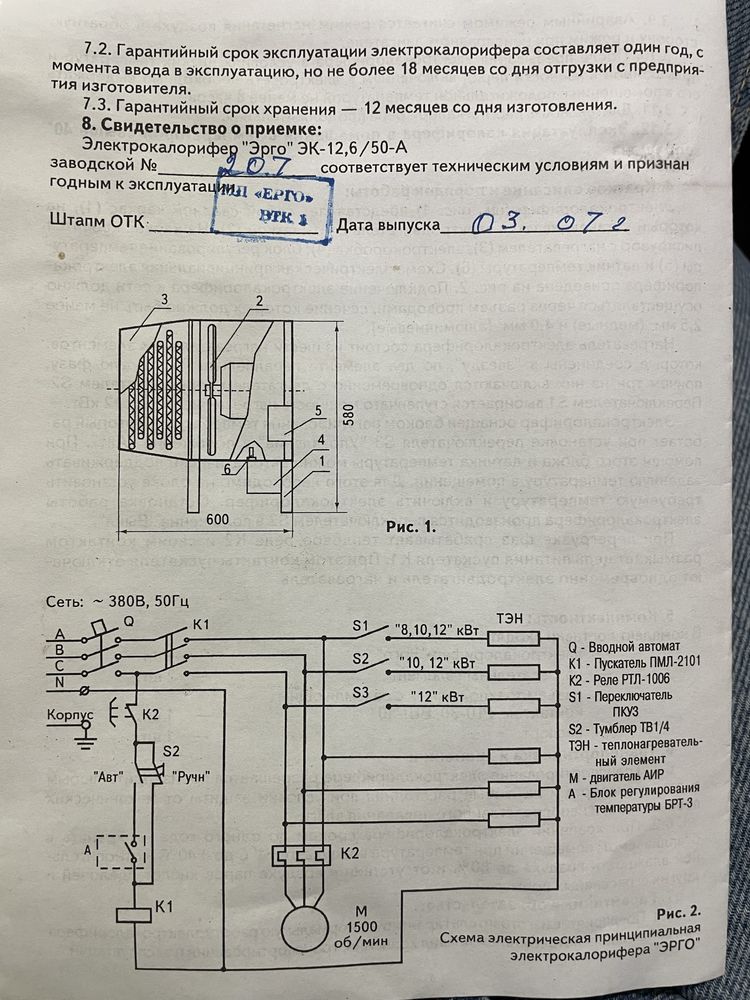 7.2. Гарантийный срок эксплуатации электрокалорифера составляет один год, с
момента ввода в эксплуатацию, но не более 18 месяцев со дня отгрузки с предприя-
тия изготовителя.
7.3. Гарантийный срок хранения — 12 месяцев со дня изготовления.
8. Свидетельство о приемке:
Электрокалорифер "Эрго" ЭК-12,6/50-А
заводской № 207 соответствует техническим условиям и признан
годным к эксплуатации.
МП «ЕРГО»
ВТК 1
Штапм ОТК Дата выпуска 03. 07г
3
2
5
4
1
6
580
600
Рис. 1.
Сеть: ~ 380В, 50Гц
Q
K1
A
B
C
N
Корпус
K2
S2
"Авт" "Ручн"
A
K1
S1 "8,10,12" кВт
ТЭН
S2 "10, 12" кВт
S3 "12" кВт
K2
М
1500
об/мин
Q - Вводной автомат
K1 - Пускатель ПМЛ-2101
K2 - Реле РТЛ-1006
S1 - Переключатель
ПКУЗ
S2 - Тумблер ТВ1/4
ТЭН - теплонагреватель-
ный элемент
М - двигатель АИР
А - Блок регулирования
температуры БРТ-3
Рис. 2.
Схема электрическая принципиальная
электрокалорифера "ЭРГО"